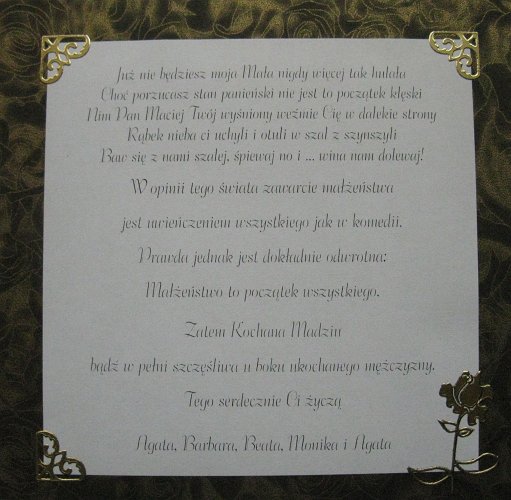 Już nie będziesz moja Mała nigdy więcej tak hulała
Choć porzucasz stan panieński nie jest to początek klęski
Nim Pan Maciej Twój wyśniony weźmie Cię w dalekie strony
Rąbek nieba ci uchyli i otuli w szal z szynszyli
Baw się z nami szalej, śpiewaj no i ... wina nam dolewaj!
W opinii tego świata zawarcie małżeństwa
jest uwieńczeniem wszystkiego jak w komedii.
Prawda jednak jest dokładnie odwrotna:
Małżeństwo to początek wszystkiego.
Zatem Kochana Madziu
bądź w pełni szczęśliwa u boku ukochanego mężczyzny.
Tego serdecznie Ci życzą
Agata, Barbara, Beata, Monika i Agata